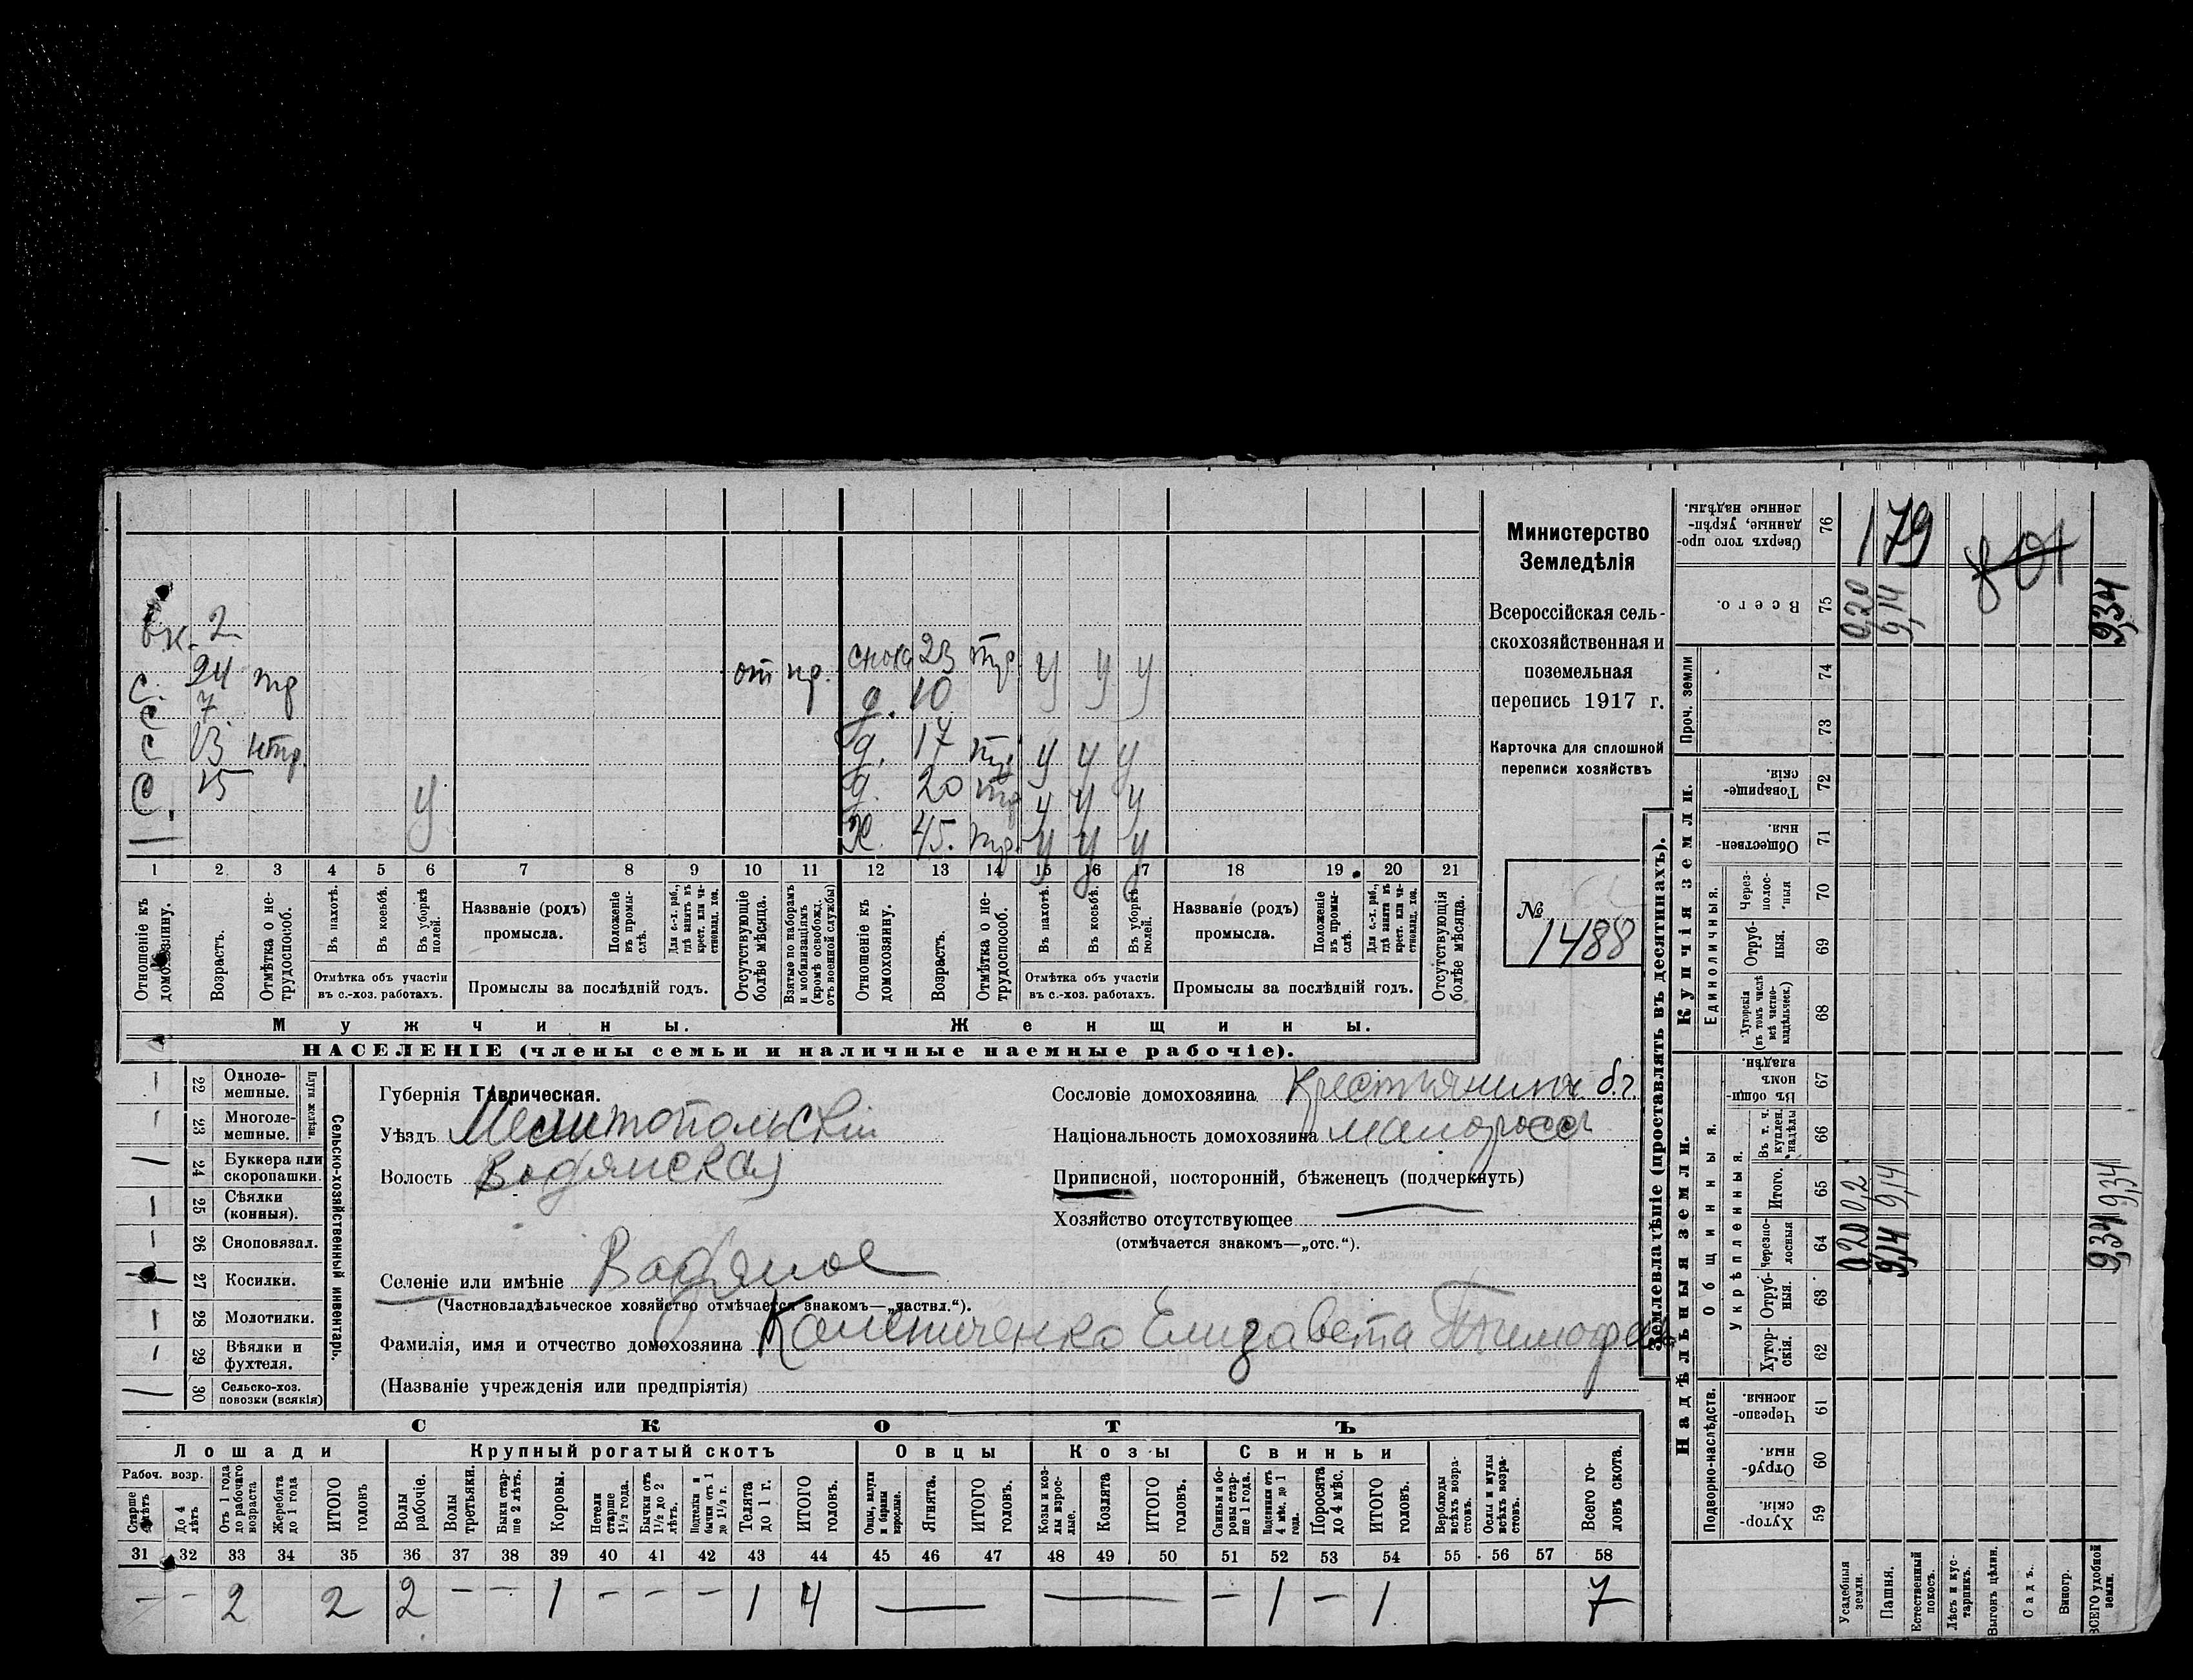 Министерство
Земледѣлія
Всероссійская сель-
скохозяйственная и
поземельная
перепись 1917 г.
Карточка для сплошной
переписи хозяйствъ
№
1488
вк. 2
С. 24 тр от пр.
С 7
С 13 нтр.
С. 15 у
—
сноха 23 тр у у у
д. 10
д. 17 тр у у у
д. 20 тр у у у
Ж. 45. тр. у у у
1 2 3 4 5 6 7 8 9 10 11 12 13 14 15 16 17 18 19 20 21
Отношеніе къ домохозяину.
Возрастъ.
Отмѣтка о не-трудоспособ.
Въ пахотѣ.
Въ косьбѣ.
Въ уборкѣ полей.
Отмѣтка объ участіи
въ с.-хоз. работахъ.
Названіе (родъ)
промысла.
Положеніе въ промы-слѣ.
Для с.-х. раб., гдѣ занятъ въ крест. или ча-стновлад. хоз.
Промыслы за послѣдній годъ.
Отсутствующіе болѣе мѣсяца.
Взятые по наборамъ и мобилизаціямъ (кромѣ освобожд. отъ военной службы)
Отношеніе къ домохозяину.
Возрастъ.
Отмѣтка о не-трудоспособ.
Въ пахотѣ.
Въ косьбѣ.
Въ уборкѣ полей.
Отмѣтка объ участіи
въ с.-хоз. работахъ.
Названіе (родъ)
промысла.
Положеніе въ промы-слѣ.
Для с.-х. раб., гдѣ занята въ крест. или ча-стновлад. хоз.
Промыслы за послѣдній годъ.
Отсутствующія болѣе мѣсяца.
Мужчины.
Женщины.
НАСЕЛЕНІЕ (члены семьи и наличные наемные рабочіе).
Сельско-хозяйственный инвентарь.
Плуги желѣзн.
22 Одноле-мешные.
23 Многоле-мешные.
24 Буккера или скоропашки.
25 Сѣялки (конныя).
26 Сноповязал.
27 Косилки.
28 Молотилки.
29 Вѣялки и фухтеля.
30 Сельско-хоз. повозки (всякія)
Губернія Таврическая.
Уѣздъ Мелитопольскій
Волость Водянская
Селеніе или имѣніе Водяное
(Частновладѣльческое хозяйство отмѣчается знакомъ—„частвл.“).
Фамилія, имя и отчество домохозяина Елизавета Тимофеев
(Названіе учрежденія или предпріятія)
Сословіе домохозяина
Національность домохозяина малоросс
Приписной, посторонній, бѣженецъ (подчеркнуть)
Хозяйство отсутствующее —
(отмѣчается знакомъ—„отс.“).
СКОТЪ
Лошади
Крупный рогатый скотъ
Овцы
Козы
Свиньи
Рабоч. возр.
Старше 4 лѣтъ
До 4 лѣтъ
Отъ 1 года до рабочаго возраста
Жеребята до 1 года
ИТОГО головъ
Волы рабочіе.
Волы третьяки.
Быки стар-ше 2 лѣтъ.
Коровы.
Нетели старше 1½ года.
Бычки отъ 1½ до 2 лѣтъ.
Подтелки и бычки отъ 1 до 1½ г.
Телята до 1 г.
ИТОГО головъ.
Овцы, валухи и бараны взрослые.
Ягнята.
ИТОГО головъ.
Козы и коз-лы взрос-лые.
Козлята
ИТОГО головъ.
Свиньи и бо-ровы стар-ше 1 года.
Подсвинки отъ 4 мѣс. до 1 года.
Поросята до 4 мѣс.
ИТОГО головъ.
Верблюды всѣхъ возра-стовъ.
Ослы и мулы всѣхъ возра-стовъ.
Всего го-ловъ скота.
31 32 33 34 35 36 37 38 39 40 41 42 43 44 45 46 47 48 49 50 51 52 53 54 55 56 57 58
— — 2 2 2 — — 1 — — — 1 4 — — — 1 — 1 7
Землевладѣніе (проставлять въ десятинахъ).
Надѣльныя земли.
Купчія земли.
Проч. земли
Подворно-наслѣдств.
Общинныя.
Укрѣпленныя.
Единоличныя.
Хутор-скія. 59
Отруб-ныя. 60
Черезпо-лосныя. 61
Хутор-скія. 62
Отруб-ныя. 63
Черезпо-лосныя 64
Итого. 65
Въ т. ч. куплен. надѣлы 66
Въ общи-номъ владѣн. 67
Хуторскія (въ томъ числѣ всѣ частно-владѣльческ.) 68
Отруб-ныя. 69
Через-полос-ныя 70
Обществен-ныя. 71
Товарище-скія. 72
73
74
Всего. 75
Сверхъ того про-данные, укрѣп-ленные надѣлы. 76
Усадебныя земли. 0,20 0,2 0,20
Пашня. 9,14 9,14 9,14
Естественный покосъ.
Лѣсъ и кус-тарникъ.
Выгонъ цѣлин.
Садъ.
Виногр.
ВСЕГО удобной земли. 9,34 9,34 9,34
179
801